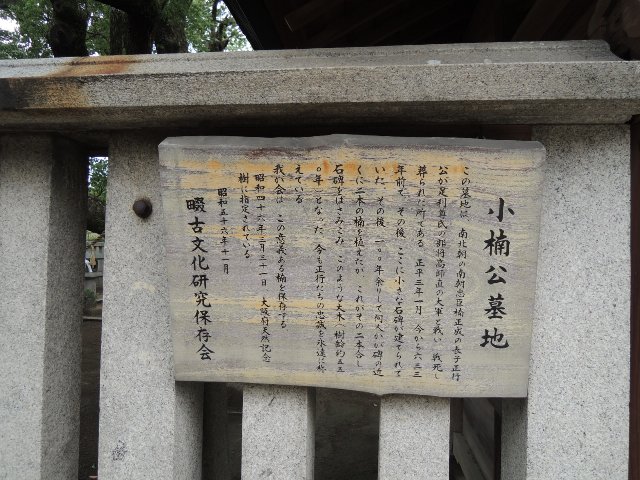 小楠公墓地
この墓地は、南北朝の南朝忠臣楠正成の長子正行
公が足利尊氏の部将高師直の大軍と戦い、戦死し
葬られた所である。正平三年一月、今から六三三
年前で、その後、ここに小さな石碑が建てられて
いた。その後、一〇〇年余りして何人かが碑の近
くに二本の楠を植えたが、これがその二本合し
石碑をはさみこみ、このような大木（樹齢約五五
〇年）となった。今も正行たちの忠誠を永遠に称
えている。
我が会は、この意義ある楠を保存する。
昭和四十六年三月三十一日 大阪府天然記念
樹に指定されている。
昭和五十六年十一月
畷古文化研究保存会